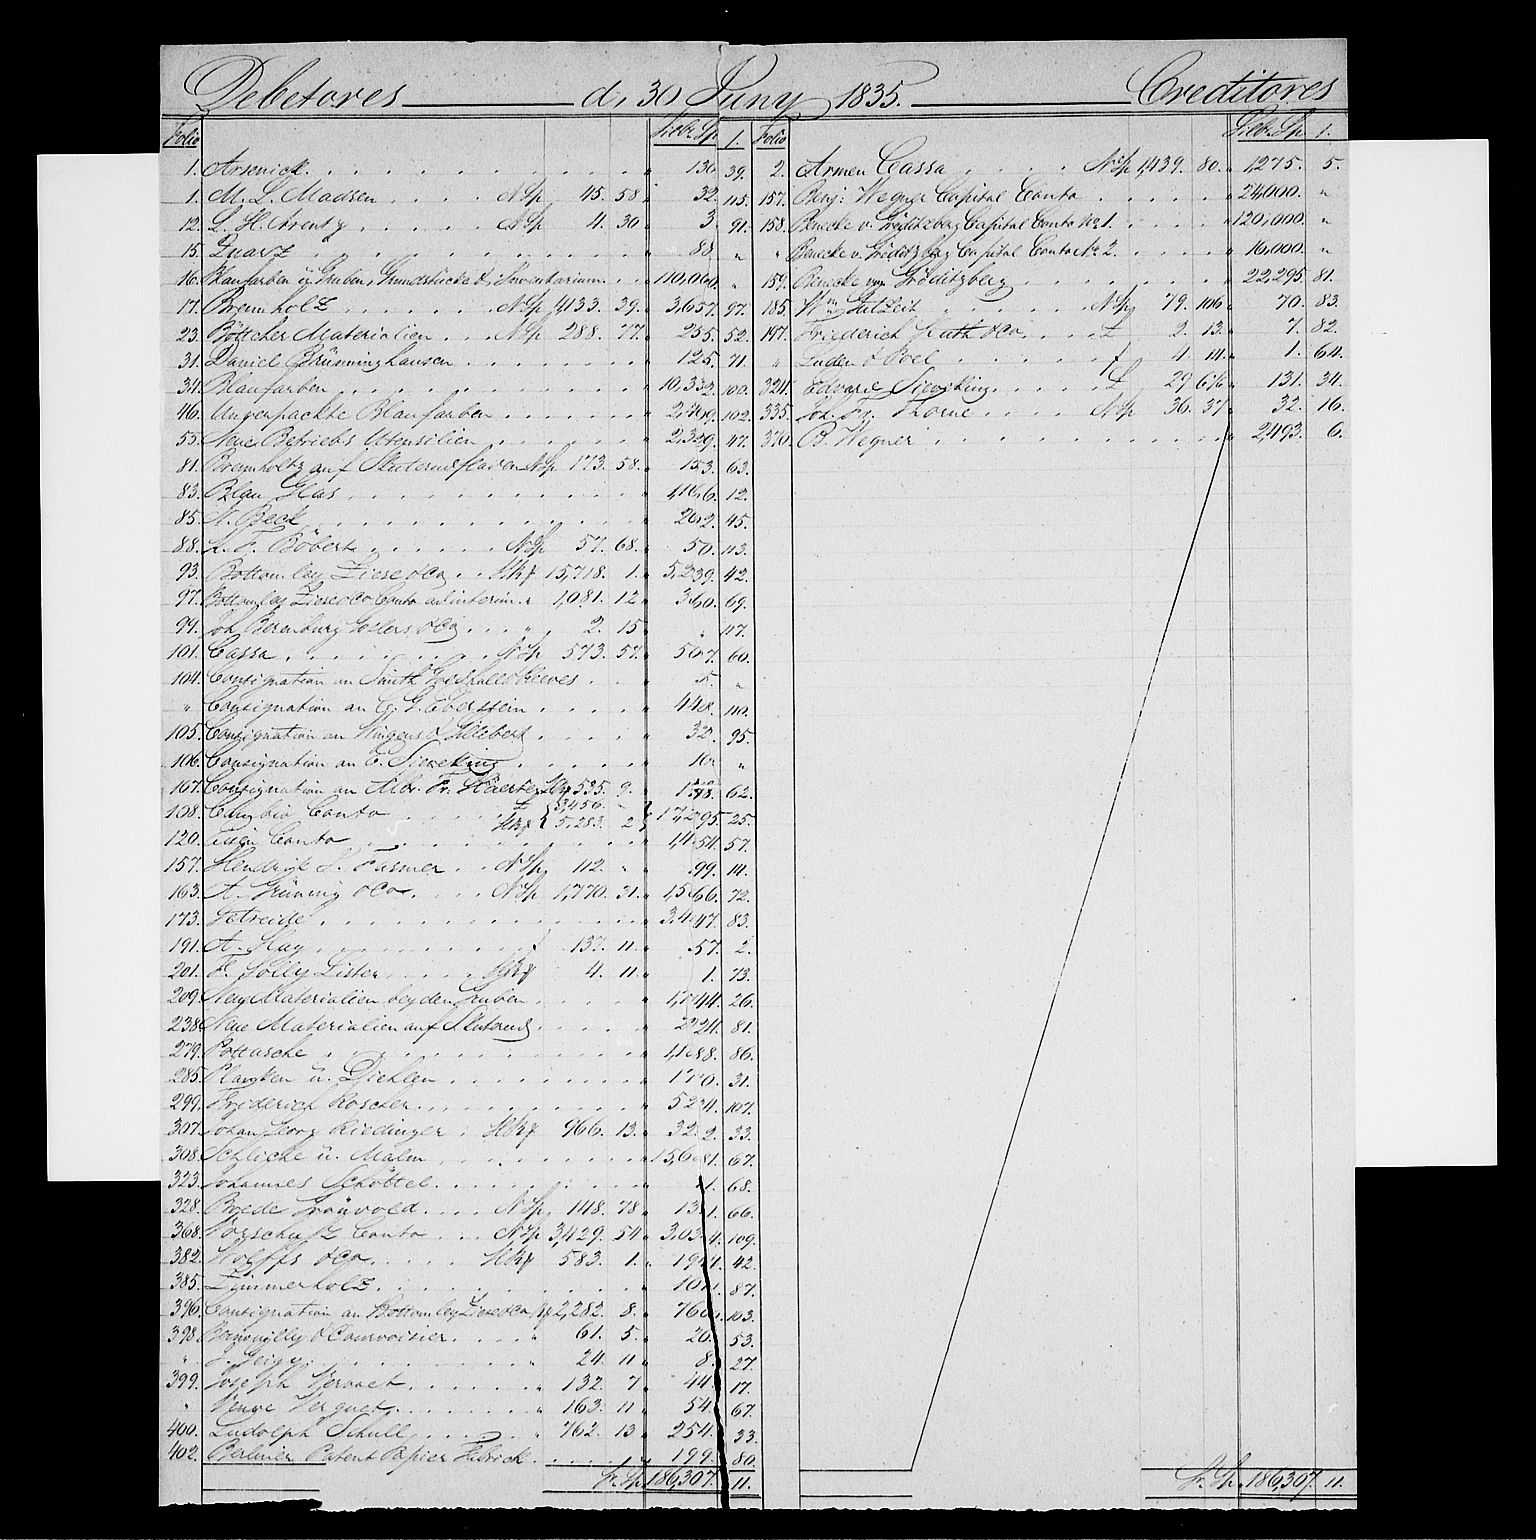 Debetores d. 30 Juny 1835. Creditores
Folio Silb. Sp. 1.
1. Arsenick 136 39.
1. M. L. Madsen NSp 45. 58 32. 115.
12. L. H. NSp 4. 30 3. 91.
15. Quarz 88. "
16. Blaufarben u. Gruben, Grundstücke & Inventarium 110,000. "
17. Brennholz NSp 4,133. 39. 3,657. 97.
23. Böttcher Materialien NSp 288. 77. 255. 52.
31. Daniel Brünninghausen 125. 71.
34. Blaufarben 10,332. 100.
46. Ungerpackte Blaufarben 102.
55. Neue Betriebs Utensilien 2,329. 47.
81. Brennholtz auf NSp 173. 58. 153. 63.
83. Blau Glas 12.
85. N. Beck 262. 45.
88. F. Böbert NSp 57. 68. 50. 113.
93. Bottomley Ziese & Co. HBk 15,718. 1. 5,239. 42.
97. Bottomley Ziese & Co Conto ad interim " 1,081. 12 360. 69.
99. Joh. Berenburg Goslers & Co " 2. 15 " 117.
101. Cassa NSp 573. 57. 507. 60.
104. Consignation an Smith 5. "
" Consignation an C. G. Eberstein 448. 110.
105. Consignation an 32. 95.
106. Consignation an E. Sieveking 10. "
107. Consignation an Fr. HBk 535. 9. 178. 62.
108. Cambio Conto £ 3,456. "
HBk 5,283. 2 17,295. 25.
120. Conto 1,454. 57.
157. Hendrik J. Farmer NSp 112. " 99. 14.
163. A. Grüning & Co NSp 1,770. 31. 1,566. 72.
173. Getreide 3,447. 83.
191. A. Hay 137. 11. 57. 2.
201. F. Solly Lister HBk 4. 11. 1. 73.
209. Neue Materialien bey den Gruben 26.
238. Neue Materialien auf 81.
279. Pottasche 1,188. 86.
285. Planken u. Diehlen 170. 31.
299. Friderich Roscher 524. 107.
307. Johan Georg Riedinger HBk 966. 13. 322. 33.
308. Schliche u. Malm 15,681. 67.
323. Johannes Schöttel 1. 68.
328. Brede NSp 148. 78. 131. 66.
368. Vorschuß Conto NSp 3,429. 54. 3,034. 109.
382. Wolffs & Co. HBk 583. 1. 194. 42.
385. Zimmerholz 87.
396. Consignation an Bottomley Ziese & Co 2,282. 8. 760. 103.
398. & Courvoisier " 61. 5. 20. 53.
" J. Geigy " 24. 11 8. 27.
399. Joseph " 132. 7 44. 17.
" Veuve " 163. 11 54. 67.
400. Ludolph Schull " 762. 13 254. 33.
402. Berliner Patent Papier Fabrick 199. 80.
Sp. 186,307. 11.
Folio Silb. Sp. 1.
2. Armen Cassa NSp 1,439. 80. 1,275. 5.
157. Benj: Wegner Capital Conto 24,000. "
158. Benecke v. Gröditzberg Capital Conto No 1. 120,000. "
" Benecke v. Gröditzberg Capital Conto No 2. 16,000. "
159. Benecke von Gröditzberg 22,295. 81.
185. Wm Gutzeit NSp 79. 106 70. 83.
197. Friederich Huth & Co £ 2. 13. 7. 82.
" Luden & 4. 14. 1. 64.
324. Edvard Sieveking £ 29 131. 34.
335. Joh. Thorne NSp 36. 37 32. 16.
370. B. Wegner 2,493. 6.
Sp. 186,307. 11.